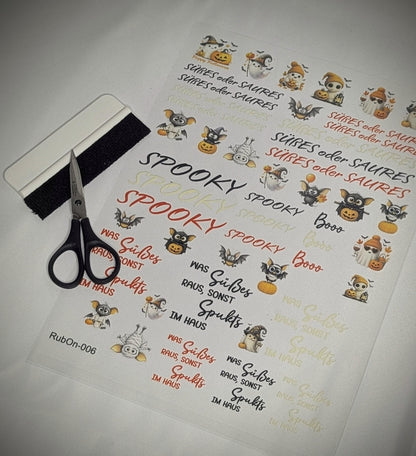 SÜẞES oder SAURES
SÜẞES oder SAURES
SÜẞES oder SAURES
SÜẞES oder SAURES
SÜẞES oder SAURES
SÜẞES oder SAURES
SÜẞES oder SAURES
SPOOKY
SPOOKY
SPOOKY
SPOOKY
SPOOKY
SPOOKY
Booo
Booo
Booo
WAS Süßes
RAUS, SONST
Spukts
IM HAUS
WAS Süßes
RAUS, SONST
Spukts
IM HAUS
WAS Süßes
RAUS, SONST
Spukts
IM HAUS
WAS Süßes
RAUS, SONST
Spukts
IM HAUS
WAS Süßes
RAUS, SONST
Spukts
IM HAUS
WAS Süßes
RAUS, SONST
Spukts
IM HAUS
RubOn-006